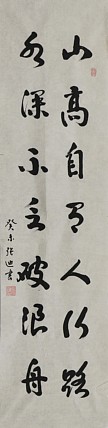 山高自有人行路
水深不乏破浪舟
癸未 张迪书